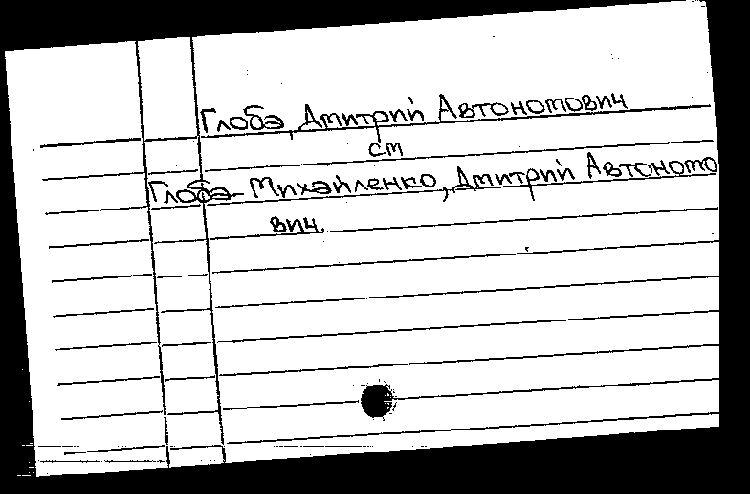 Глоба, Дмитрий Автономович
см
Глоба-Михайленко, Дмитрий Автономо
вич.